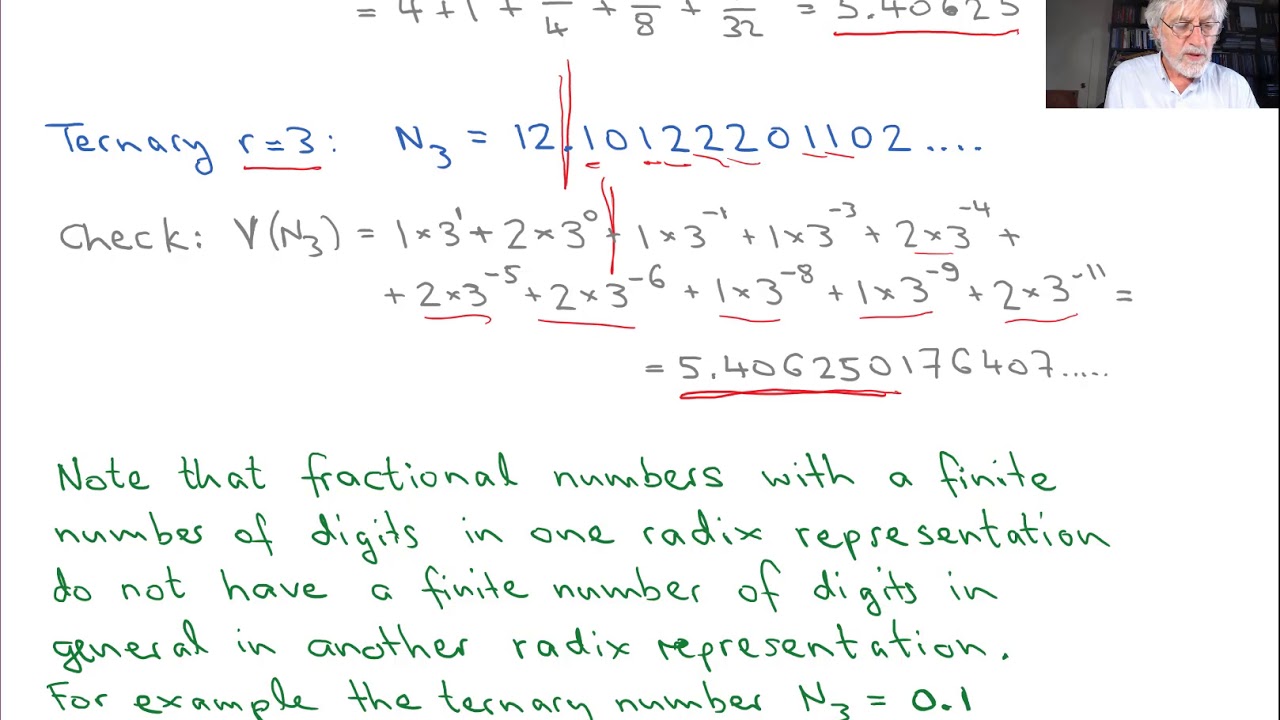 = 4 + 1 + — 4 + — 8 + — 32 = 5.40625
Ternary r=3: N₃ = 12.10122201102....
Check: V(N₃) = 1×3¹ + 2×3⁰ + 1×3⁻¹ + 1×3⁻³ + 2×3⁻⁴ +
+ 2×3⁻⁵ + 2×3⁻⁶ + 1×3⁻⁸ + 1×3⁻⁹ + 2×3⁻¹¹ =
= 5.406250176407.....
Note that fractional numbers with a finite
number of digits in one radix representation
do not have a finite number of digits in
general in another radix representation.
For example the ternary number N₃ = 0.1